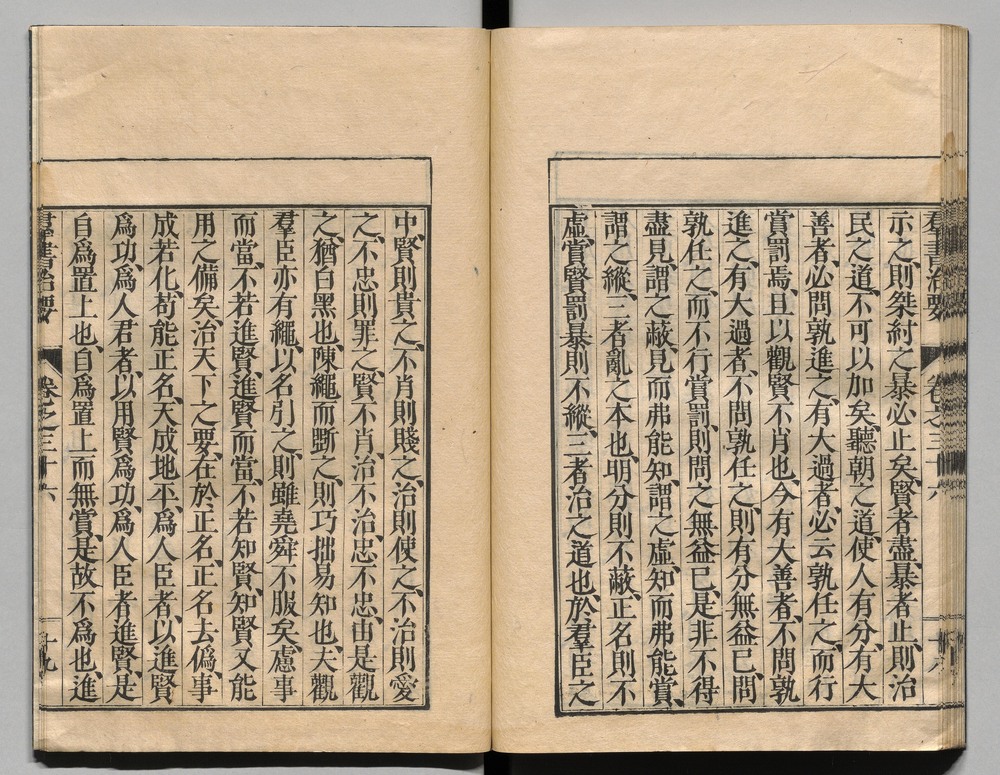 羣書治要 卷之三十六 十八
示之、則桀紂之暴必止矣、賢者盡暴者止、則治
民之道、不可以加矣、聽朝之道、使人有分、有大
善者、必問孰進之、有大過者、必云孰任之、而行
賞罰焉、且以觀賢不肖也、今有大善者、不問孰
進之、有大過者、不問孰任之、則有分無益已、問
孰任之、而不行賞罰、則問之無益已、是非不得
盡見、謂之蔽、見而弗能知、謂之虛、知而弗能賞、
謂之縱、三者亂之本也、明分則不蔽、正名則不
虛、賞賢罰暴則不縱、三者治之道也、於羣臣之
中、賢則貴之、不肖則賤之、治則使之、不治則愛
之、不忠則罪之、賢不肖、治不治、忠不忠、由是觀
之、猶白黑也、陳繩而斲之、則巧拙易知也、夫觀
羣臣亦有繩、以名引之、則雖堯舜不服矣、慮事
而當、不若進賢、進賢而當、不若知賢、知賢又能
用之備矣、治天下之要、在於正名、正名去僞、事
成若化、苟能正名、天成地平、爲人臣者、以進賢
爲功、爲人君者、以用賢爲功、爲人臣者進賢、是
自爲置上也、自爲置上而無賞、是故不爲也、進
羣書治要 卷之三十六 十九